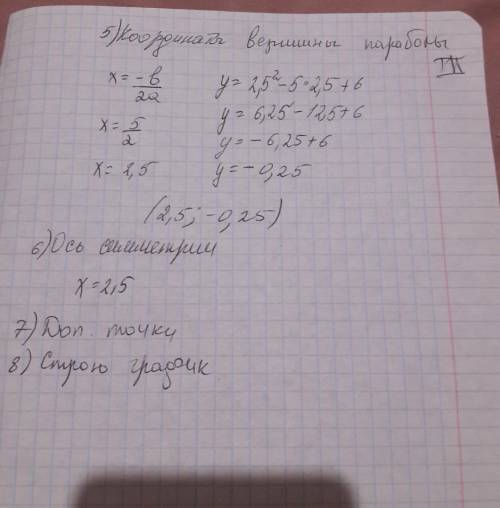 5) Координаты вершины параболы
III
x = -b/2a
y = 2,5² - 5·2,5 + 6
x = 5/2
y = 6,25 - 12,5 + 6
y = - 6,25 + 6
x = 2,5
y = - 0,25
(2,5; -0,25)
6) Ось симметрии
x = 2,5
7) Доп. точки
8) Строю график